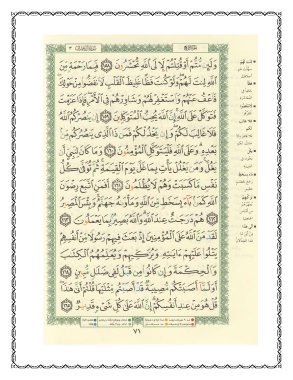 وَلَئِن مُّتُّمْ أَوْ قُتِلْتُمْ لَإِلَى ٱللَّهِ تُحْشَرُونَ ١٥٨ فَبِمَا رَحْمَةٍ مِّنَ
ٱللَّهِ لِنتَ لَهُمْ وَلَوْ كُنتَ فَظًّا غَلِيظَ ٱلْقَلْبِ لَٱنفَضُّوا۟ مِنْ حَوْلِكَ
فَٱعْفُ عَنْهُمْ وَٱسْتَغْفِرْ لَهُمْ وَشَاوِرْهُمْ فِى ٱلْأَمْرِ فَإِذَا عَزَمْتَ
فَتَوَكَّلْ عَلَى ٱللَّهِ إِنَّ ٱللَّهَ يُحِبُّ ٱلْمُتَوَكِّلِينَ ١٥٩ إِن يَنصُرْكُمُ ٱللَّهُ
فَلَا غَالِبَ لَكُمْ وَإِن يَخْذُلْكُمْ فَمَن ذَا ٱلَّذِى يَنصُرُكُم مِّنۢ
بَعْدِهِۦ وَعَلَى ٱللَّهِ فَلْيَتَوَكَّلِ ٱلْمُؤْمِنُونَ ١٦٠ وَمَا كَانَ لِنَبِىٍّ أَن
يَغُلَّ وَمَن يَغْلُلْ يَأْتِ بِمَا غَلَّ يَوْمَ ٱلْقِيَٰمَةِ ثُمَّ تُوَفَّىٰ كُلُّ
نَفْسٍ مَّا كَسَبَتْ وَهُمْ لَا يُظْلَمُونَ ١٦١ أَفَمَنِ ٱتَّبَعَ رِضْوَٰنَ
ٱللَّهِ كَمَنۢ بَآءَ بِسَخَطٍ مِّنَ ٱللَّهِ وَمَأْوَىٰهُ جَهَنَّمُ وَبِئْسَ ٱلْمَصِيرُ
١٦٢ هُمْ دَرَجَٰتٌ عِندَ ٱللَّهِ وَٱللَّهُ بَصِيرٌۢ بِمَا يَعْمَلُونَ ١٦٣
لَقَدْ مَنَّ ٱللَّهُ عَلَى ٱلْمُؤْمِنِينَ إِذْ بَعَثَ فِيهِمْ رَسُولًا مِّنْ أَنفُسِهِمْ
يَتْلُوا۟ عَلَيْهِمْ ءَايَٰتِهِۦ وَيُزَكِّيهِمْ وَيُعَلِّمُهُمُ ٱلْكِتَٰبَ
وَٱلْحِكْمَةَ وَإِن كَانُوا۟ مِن قَبْلُ لَفِى ضَلَٰلٍ مُّبِينٍ ١٦٤
أَوَلَمَّآ أَصَٰبَتْكُم مُّصِيبَةٌ قَدْ أَصَبْتُم مِّثْلَيْهَا قُلْتُمْ أَنَّىٰ هَٰذَا
قُلْ هُوَ مِنْ عِندِ أَنفُسِكُمْ إِنَّ ٱللَّهَ عَلَىٰ كُلِّ شَىْءٍ قَدِيرٌ ١٦٥
٧١